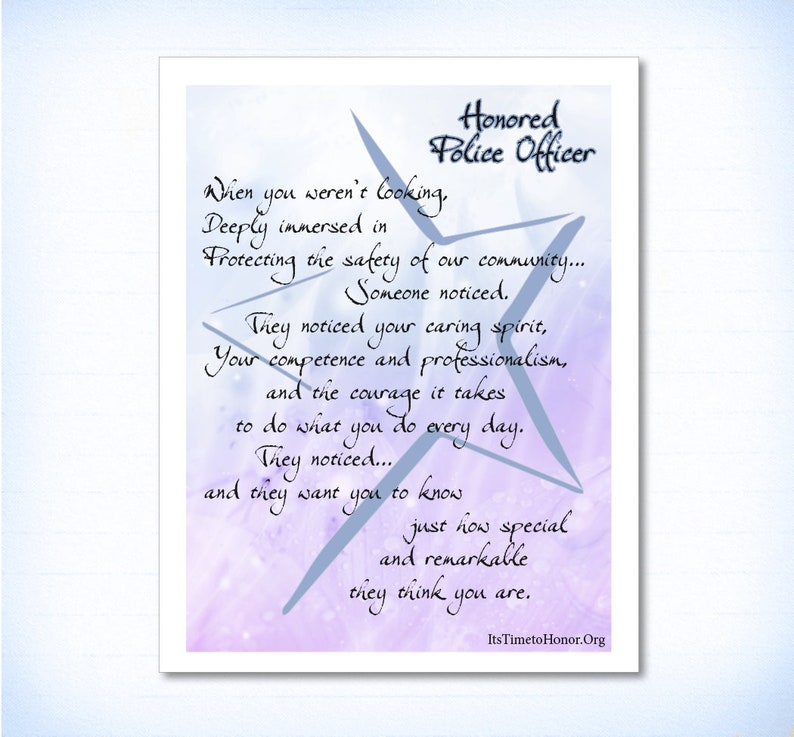 Honored
Police Officer
When you weren't looking,
Deeply immersed in
Protecting the safety of our community...
Someone noticed.
They noticed your caring spirit,
Your competence and professionalism,
and the courage it takes
to do what you do every day.
They noticed...
and they want you to know
just how special
and remarkable
they think you are.
ItsTimetoHonor.Org